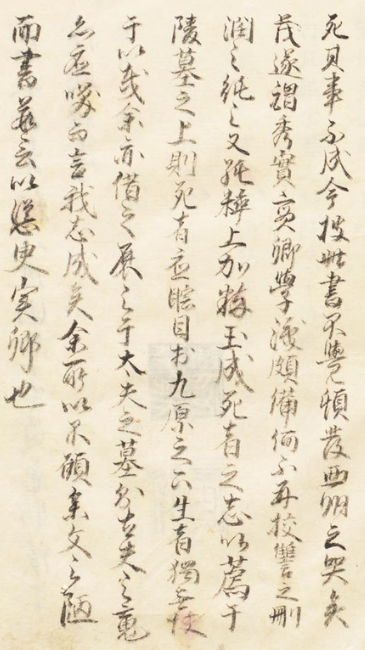 死其事不成今披此書不覺頓發西州之哭矣
茂遂謂秀實賓卿學淺頗備何不再校讐之刪
潤之純之又純粹上加粹玉成死者之志以薦于
陵墓之上則死者應瞑目於九原之下生者獨無愧
于心哉余亦借之展之于大夫之墓如大夫之竟
亦應咲而言我志成矣余所以不顧余文之陋
而書若云以慫臾実卿也